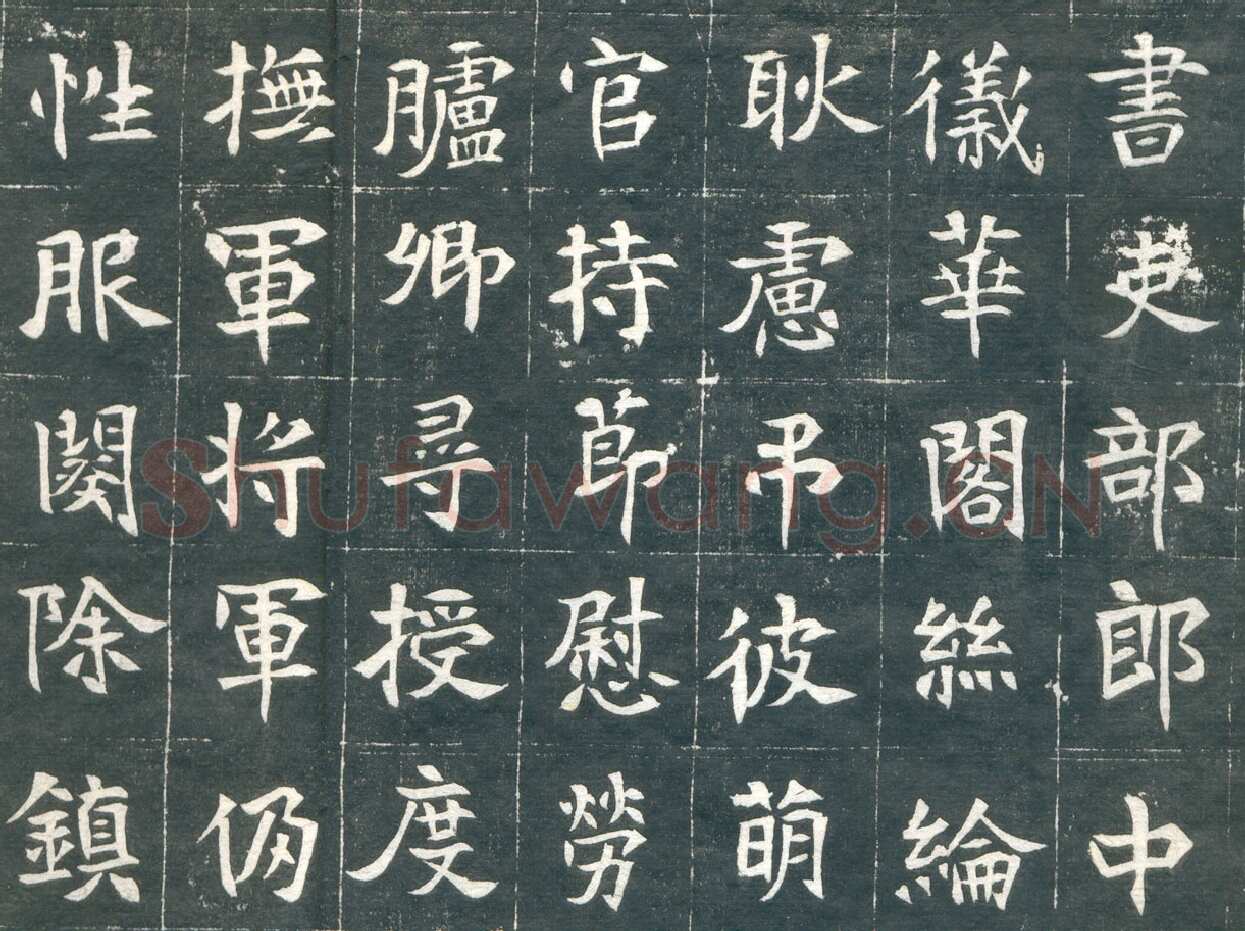 書吏部郎中
儀華閣絲綸
耿慮弔彼萌
官持節慰勞
臚卿尋授度
撫軍將軍仍
性服闋除鎮
Shufawang.CN